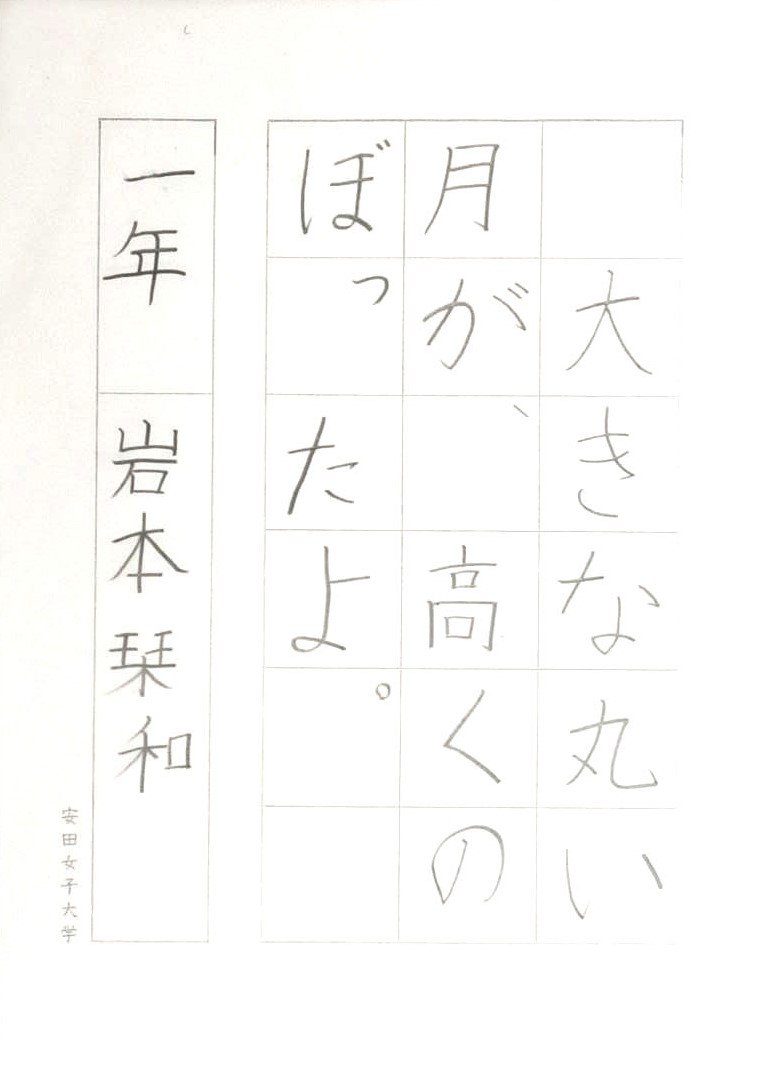 大きな丸い
月が、高くの
ぼったよ。
一年 岩本栞和
安田女子大学